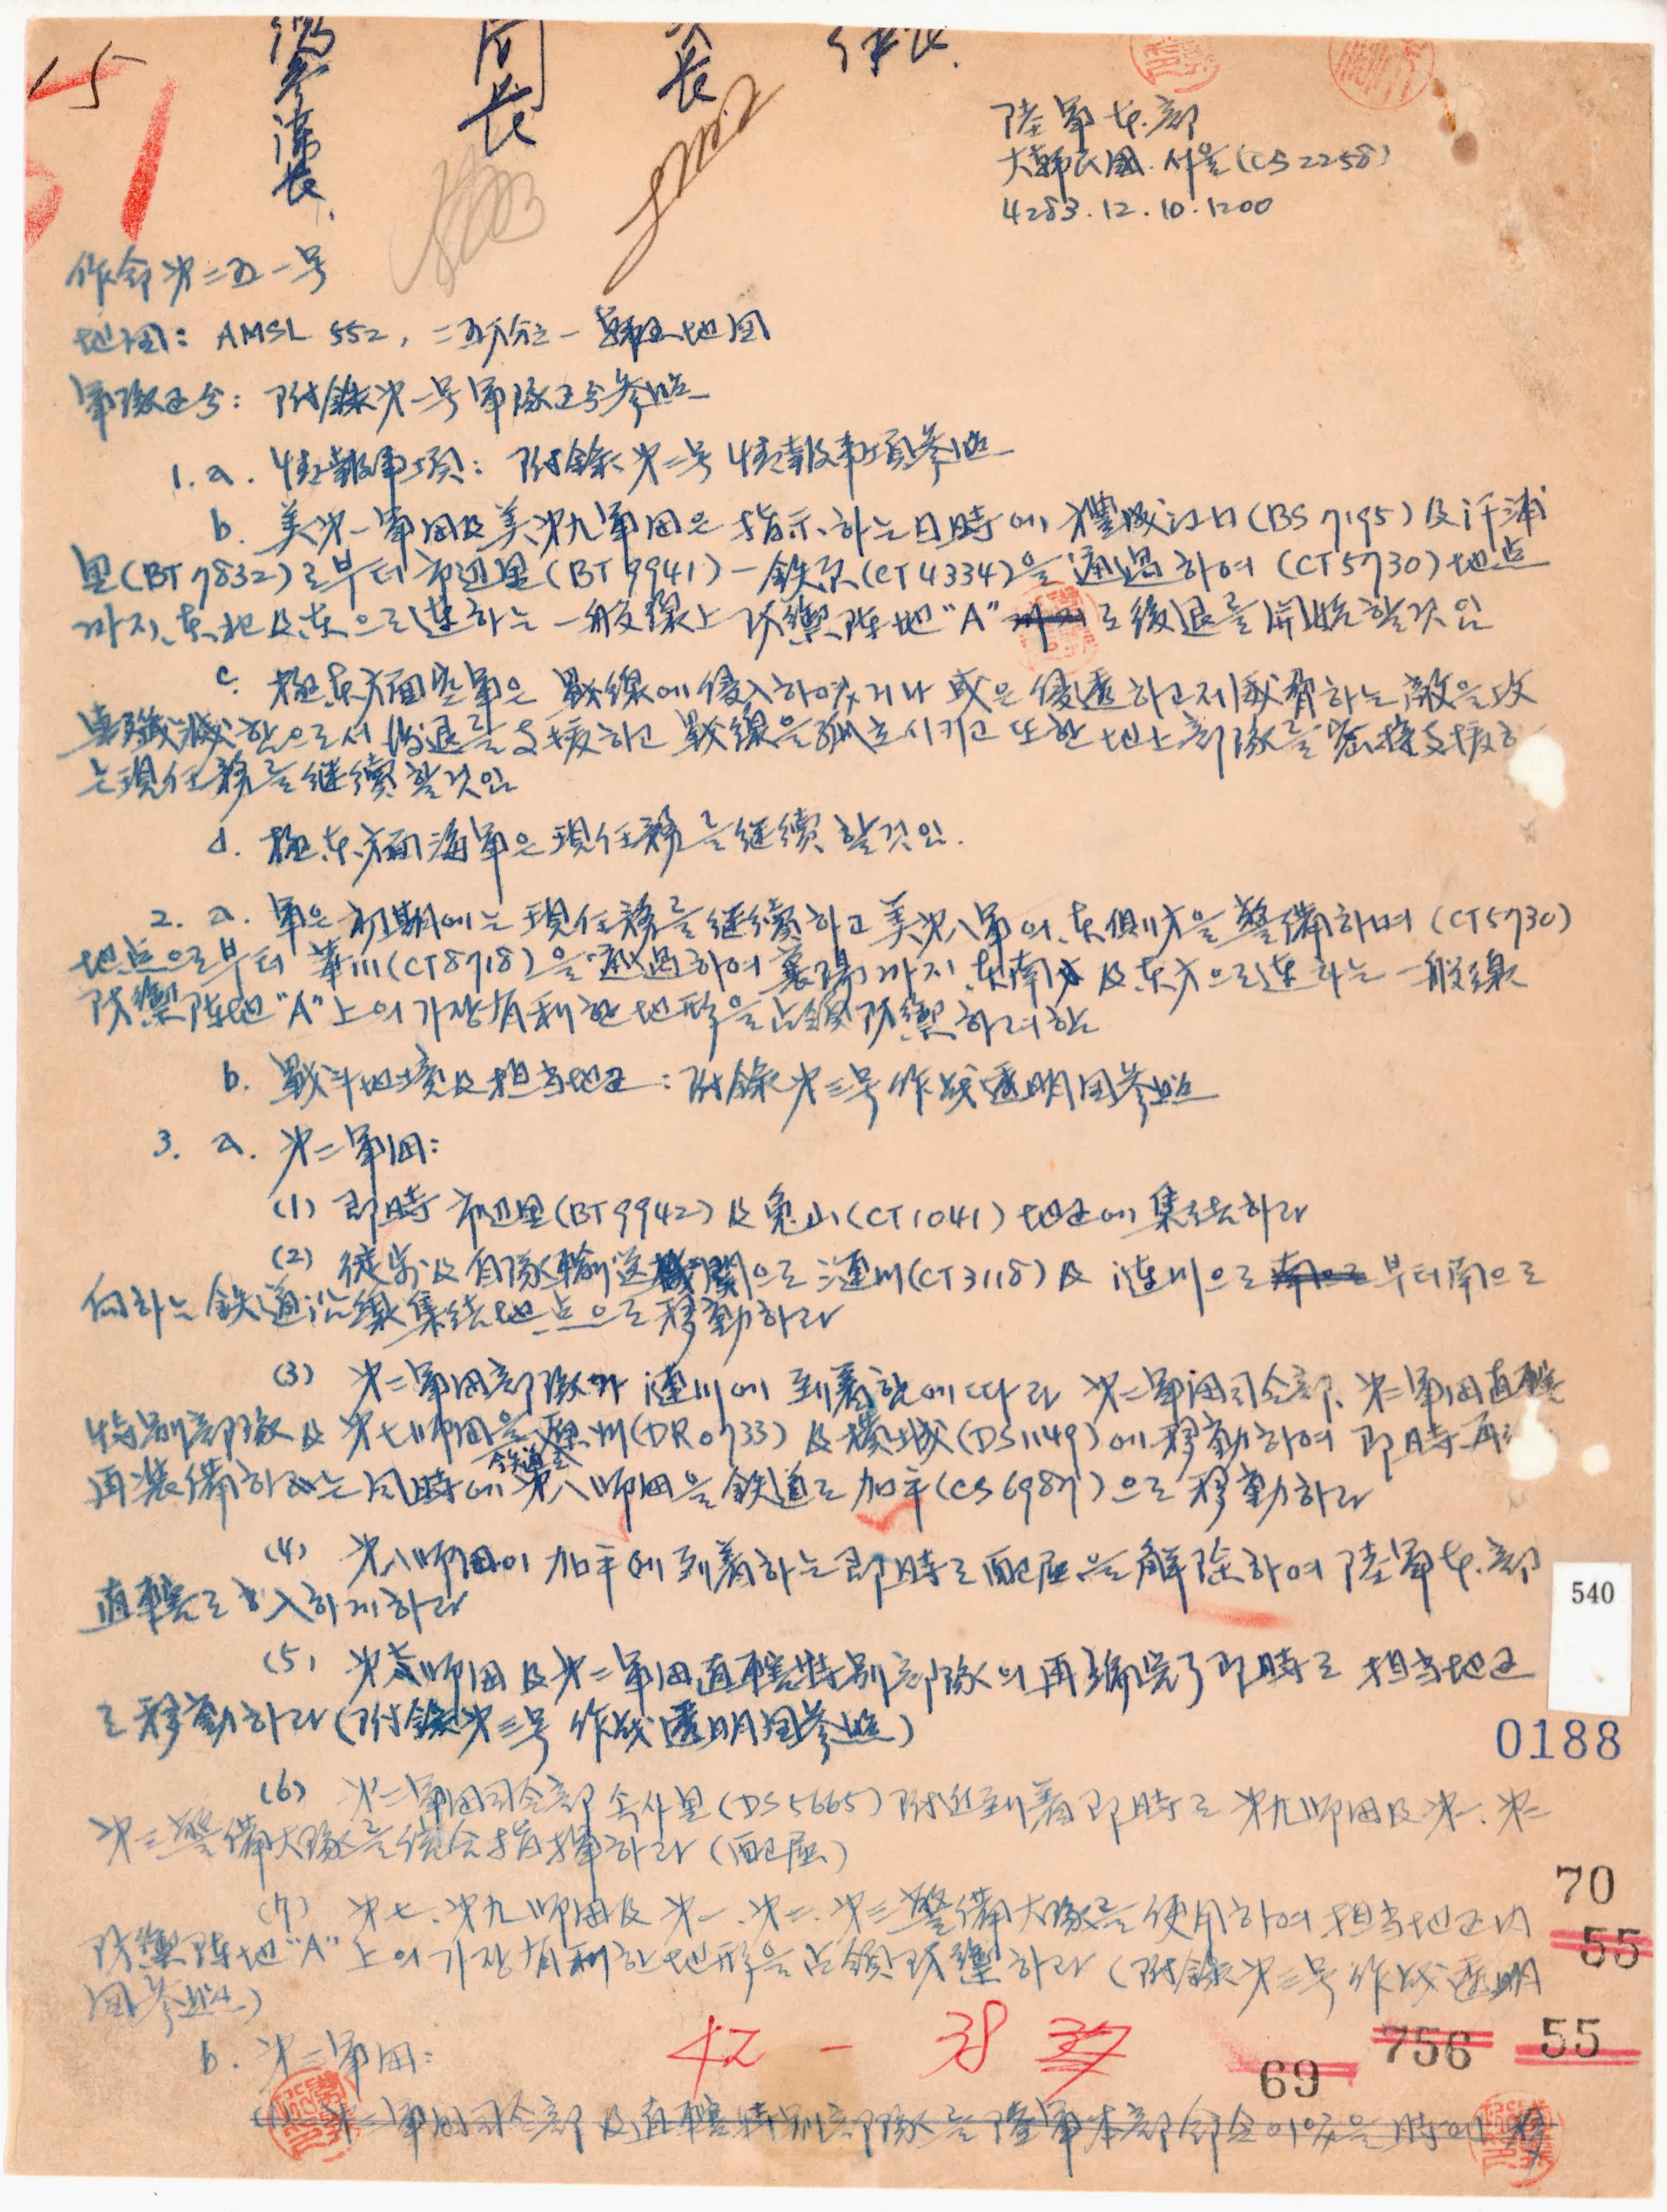 15
51
參謀長
局長
長
陸軍本部
大韓民國 서울 (CS 2258)
4283.12.10.1200
作命第二五一号
地図: AMSL 552, 二五万分之一 地図
軍隊区分: 附錄第一号 軍隊区分參照
1. a. 情報事項: 附錄第二号 情報事項參照
b. 美第一軍団及美第九軍団은 指示하는 日時에 禮成江口(BS 7195) 及 汗浦
里(BT 7832)로부터 市辺里(BT 9941)-鉄原(CT 4334)을 通過하여 (CT 5730)地点
까지 東北及東으로 連하는 一般線上 防禦陣地 "A" 로 後退를 開始할것임
c. 極東方面空軍은 戰線에 侵入하였거나 或은 侵透하고저 하는 敵을 攻
擊殲滅함으로서 後退를 支援하고 戰線을 孤立시키고 또한 地上部隊를 密接支援하
는 現任務를 継續할것임
d. 極東方面海軍은 現任務를 継續할것임.
2. a. 軍은 初期에는 現任務를 継續하고 美第八軍의 東側方을 警備하며 (CT 5730)
地点으로부터 華川(CT 8718)을 通過하여 襄陽까지 東南方 及 東方으로 連하는 一般線
防禦陣地 "A" 上의 가장 有利한 地形을 占領 防禦하려함
b. 戰斗地境及担当地区: 附錄第三号 作战透明図參照
3. a. 第二軍団:
(1) 即時 市辺里(BT 9942) 及 兎山(CT 1041) 地区에 集結하라
(2) 徒步及自隊輸送機関으로 漣川(CT 3118) 及 漣川으로 부터 南으로
向하는 鉄道沿線集結地点으로 移動하라
(3) 第二軍団部隊가 漣川에 到着함에 따라 第二軍団司令部, 第二軍団直轄
特別部隊 及 第七師団을 鉄道로 原州(DR 0733) 及 橫城(DS 1149)에 移動하여 即時 再
再装備하며는 同時에 第八師団을 鉄道로 加平(CS 6987)으로 移動하라
(4) 第八師団이 加平에 到着하는 即時로 配屬을 解除하여 陸軍本部
直轄로 入하게하라
(5) 第七師団 及 第二軍団直轄特別部隊의 再編完了 即時로 担当地区
로 移動하라 (附錄第三号 作战透明図參照)
(6) 第二軍団司令部 속사里(DS 5665) 附近到着 即時로 第九師団及第一, 第二
第三警備大隊를 統合指揮하라 (配屬)
(7) 第七, 第九師団及 第一, 第二, 第三警備大隊를 使用하여 担当地区内
防禦陣地 "A" 上의 가장 有利한 地形을 占領 防禦하라 (附錄第三号 作战透明
図參照)
b. 第三軍団:
(1) 第三軍団司令部 及 直轄特別部隊를 陸軍本部 命令이있을 時에 移
540
0188
70
55
756
55
69
42 - 38 37